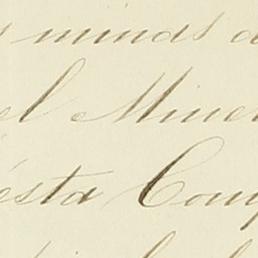 minds
el Miner
esta Comp